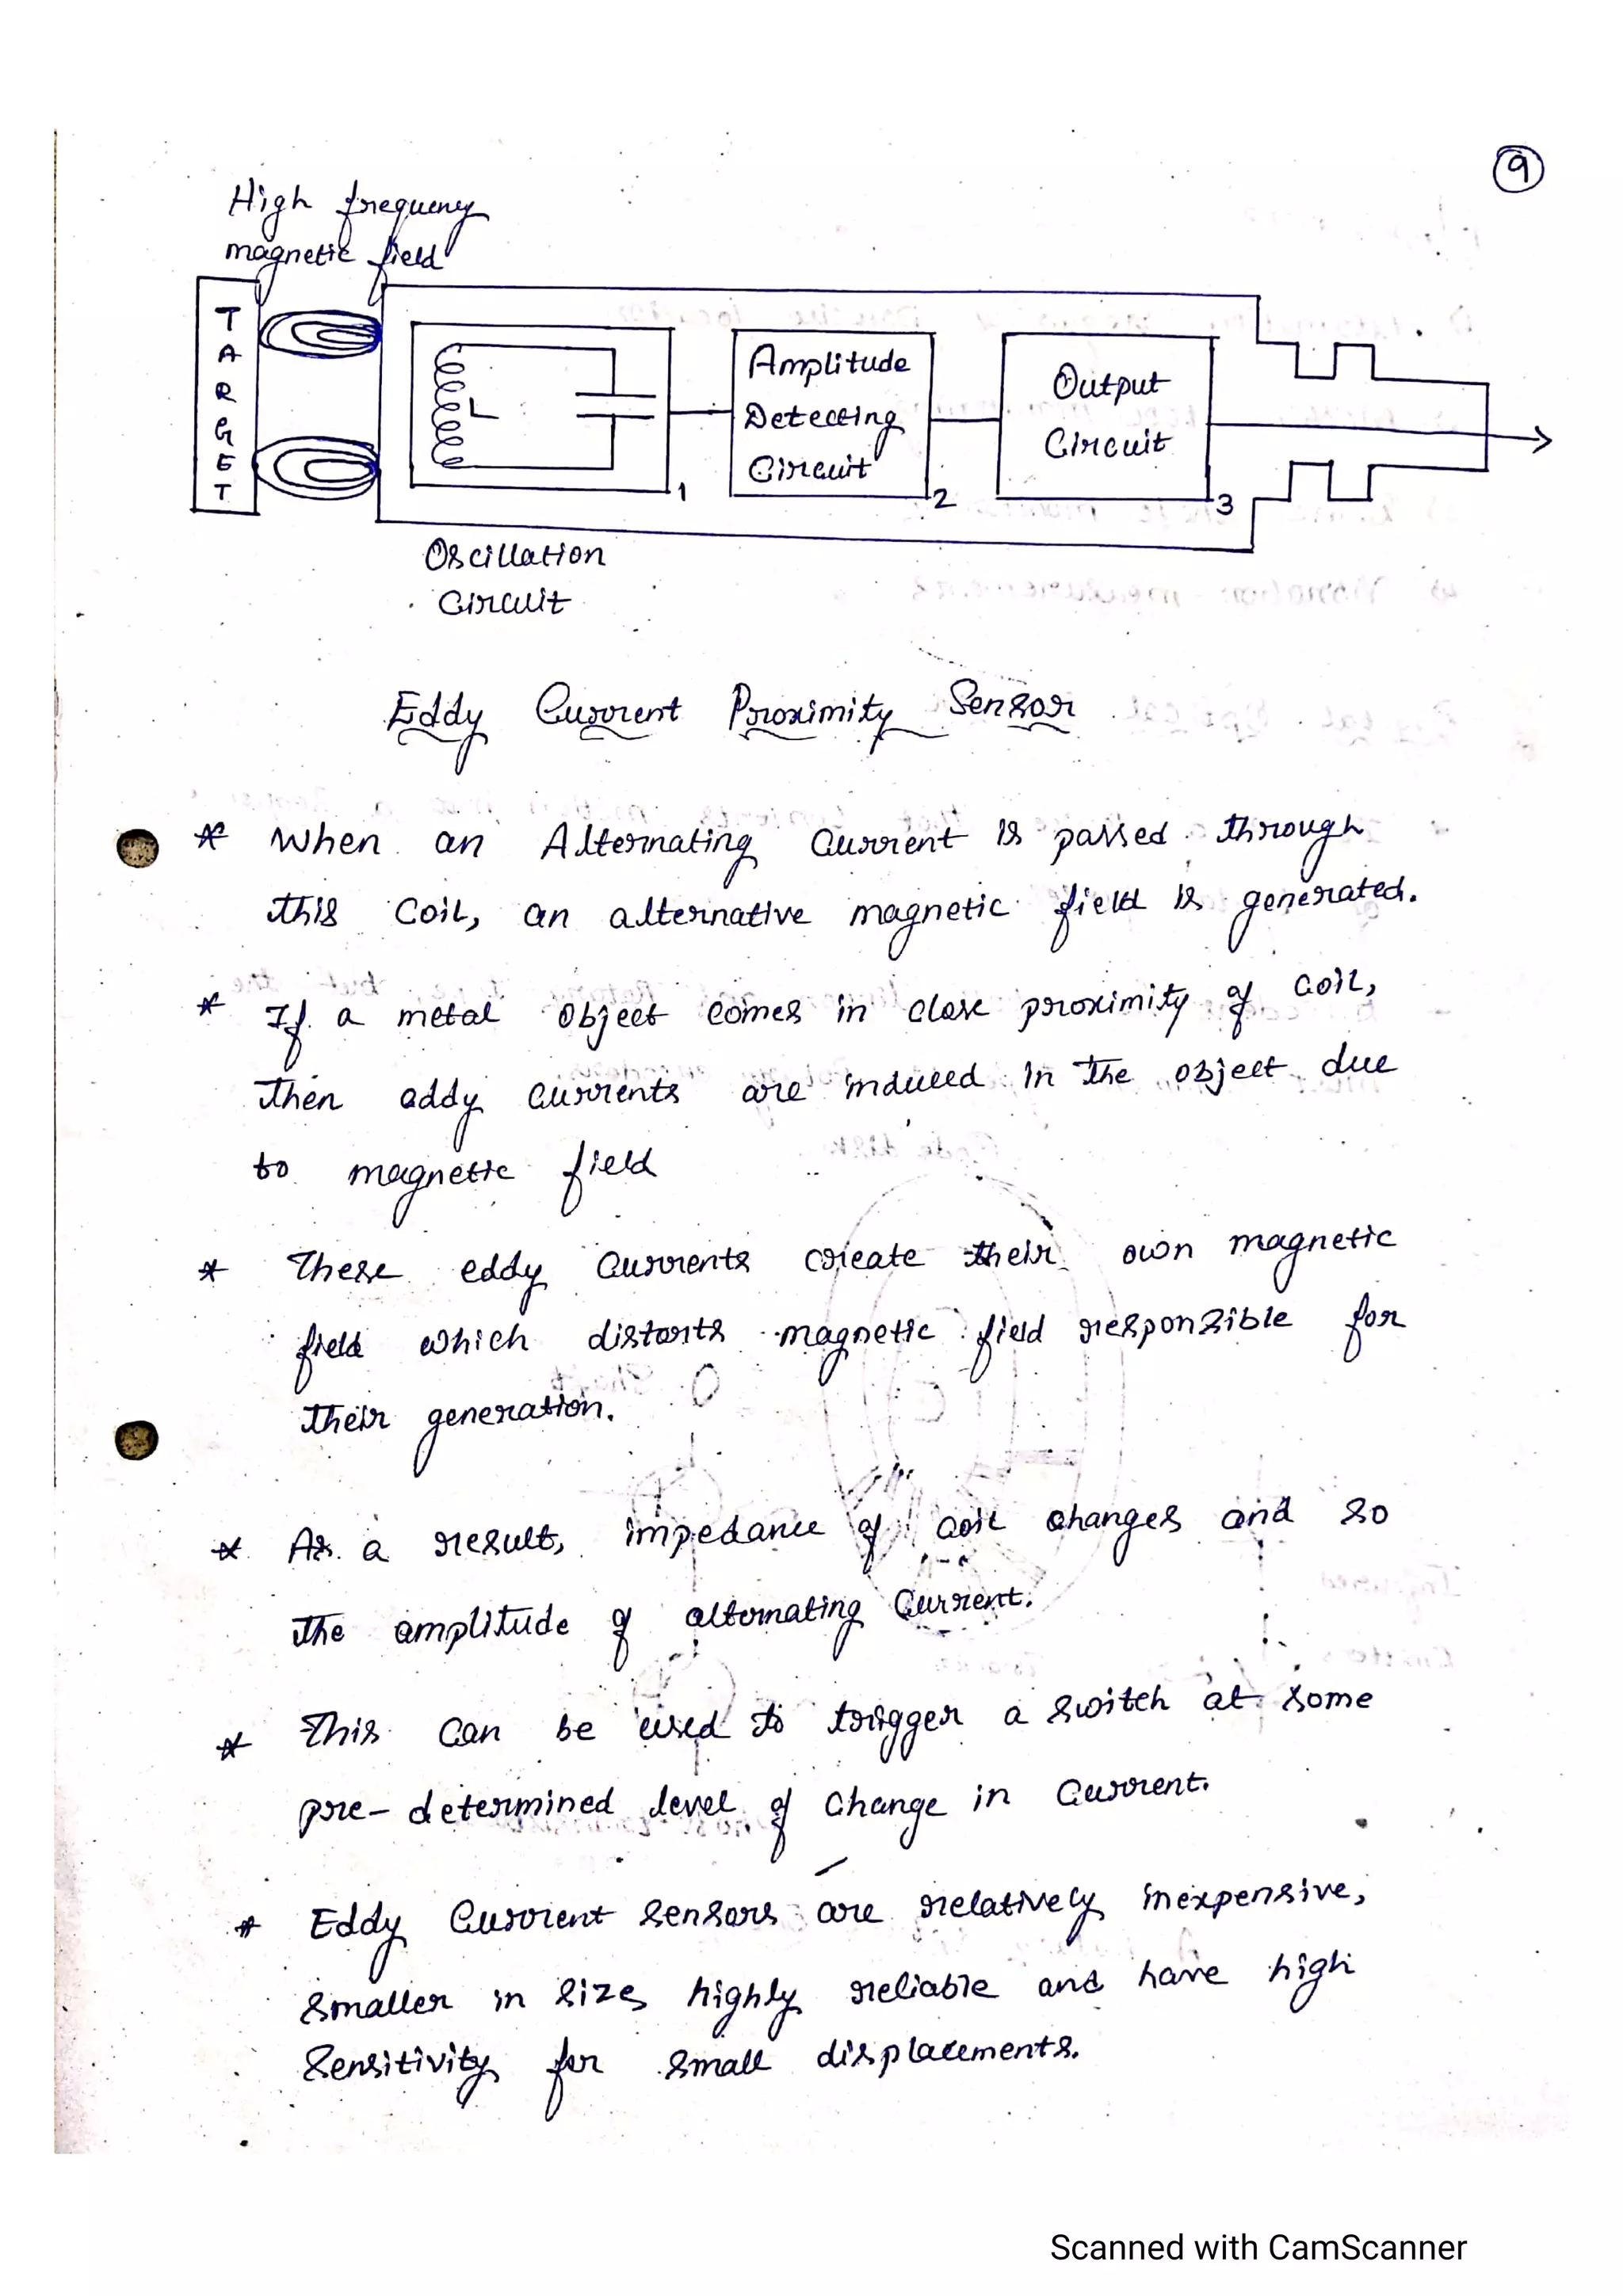 9
High frequency
magnetic field
TARGET
L
1
Amplitude
Detecting
Circuit
2
Output
Circuit
3
Oscillation
Circuit
Eddy Current Proximity Sensor
* When an Alternating Current is passed through
this Coil, an alternative magnetic field is generated.
* If a metal object comes in close proximity of coil,
then addy currents are induced in the object due
to magnetic field
* These eddy currents create their own magnetic
field which distorts magnetic field responsible for
their generation.
* As a result, impedance of coil changes and so
the amplitude of alternating current.
* This can be used to trigger a switch at some
pre-determined level of change in current.
* Eddy Current sensors are relatively inexpensive,
smaller in size, highly reliable and have high
sensitivity for small displacements.
Scanned with CamScanner